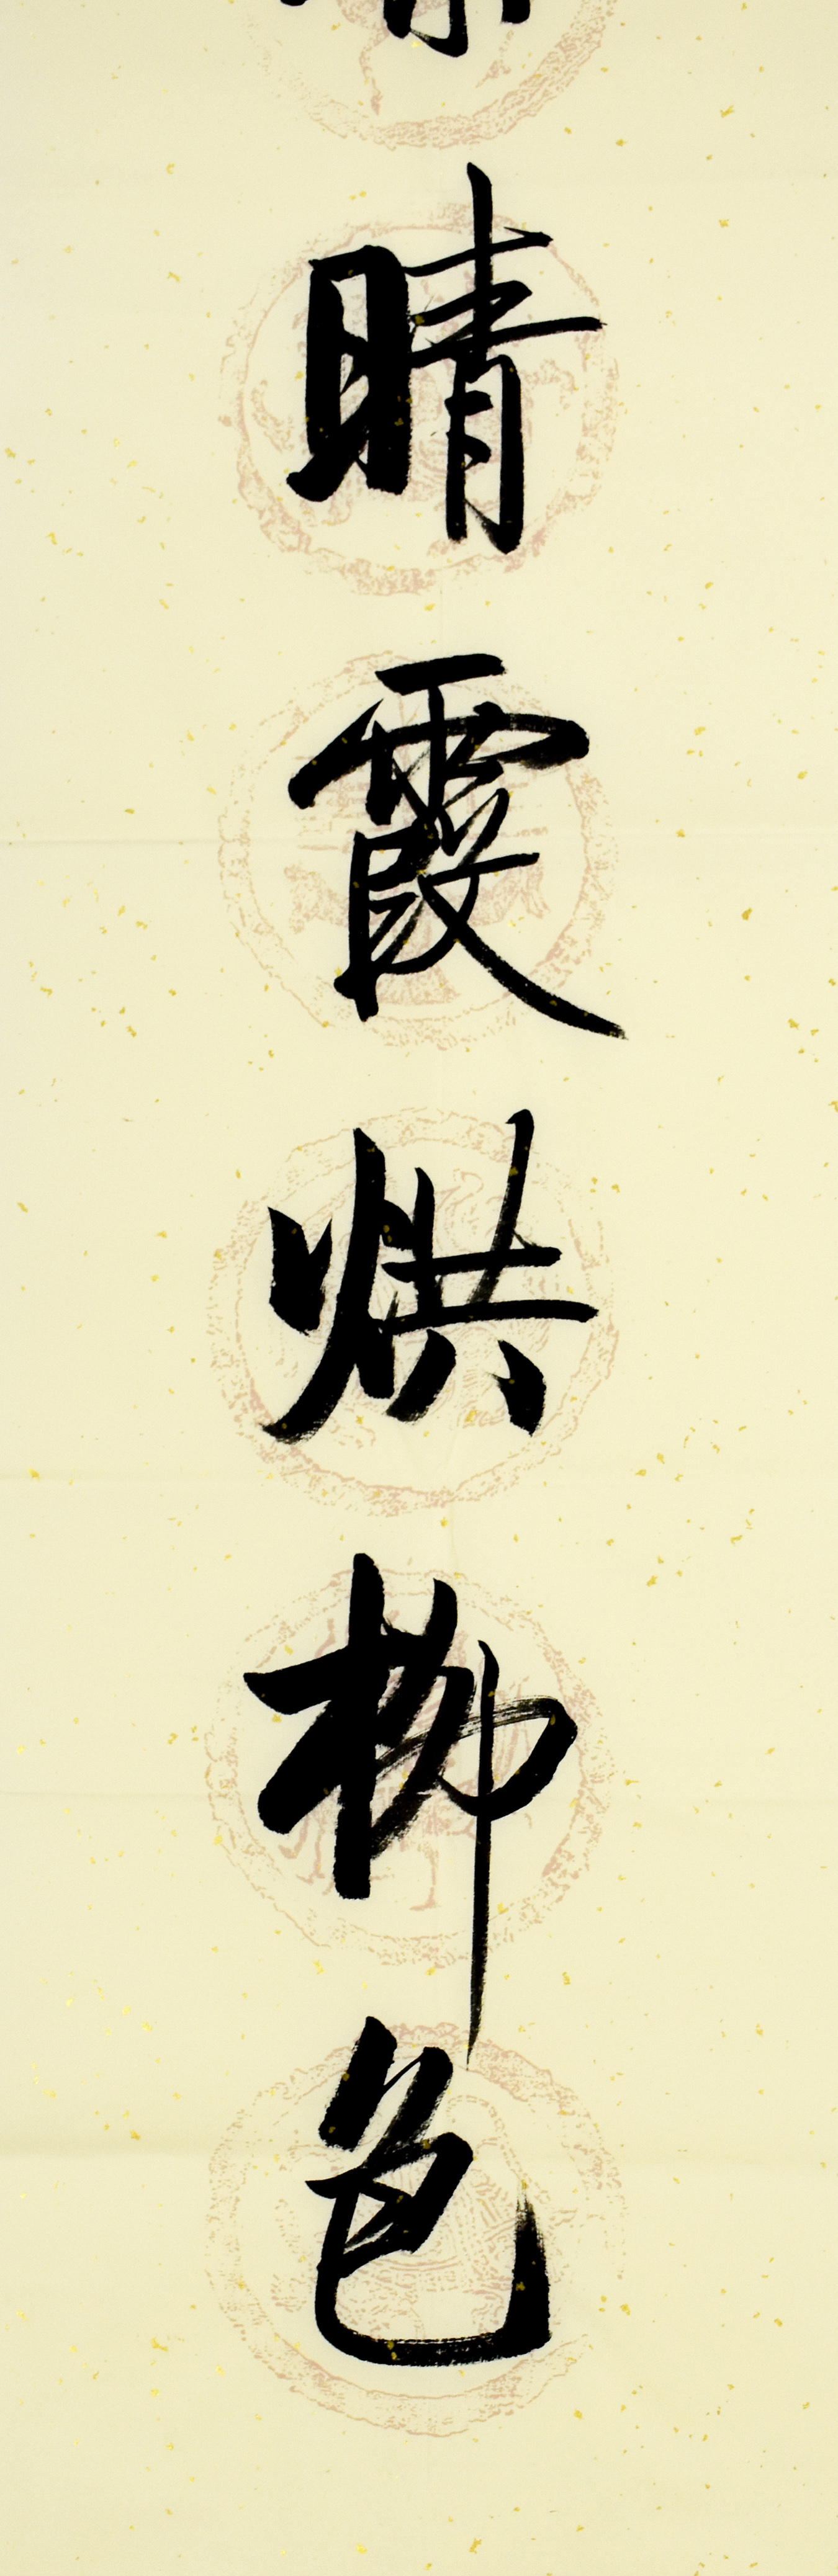 晴霞烘柳色